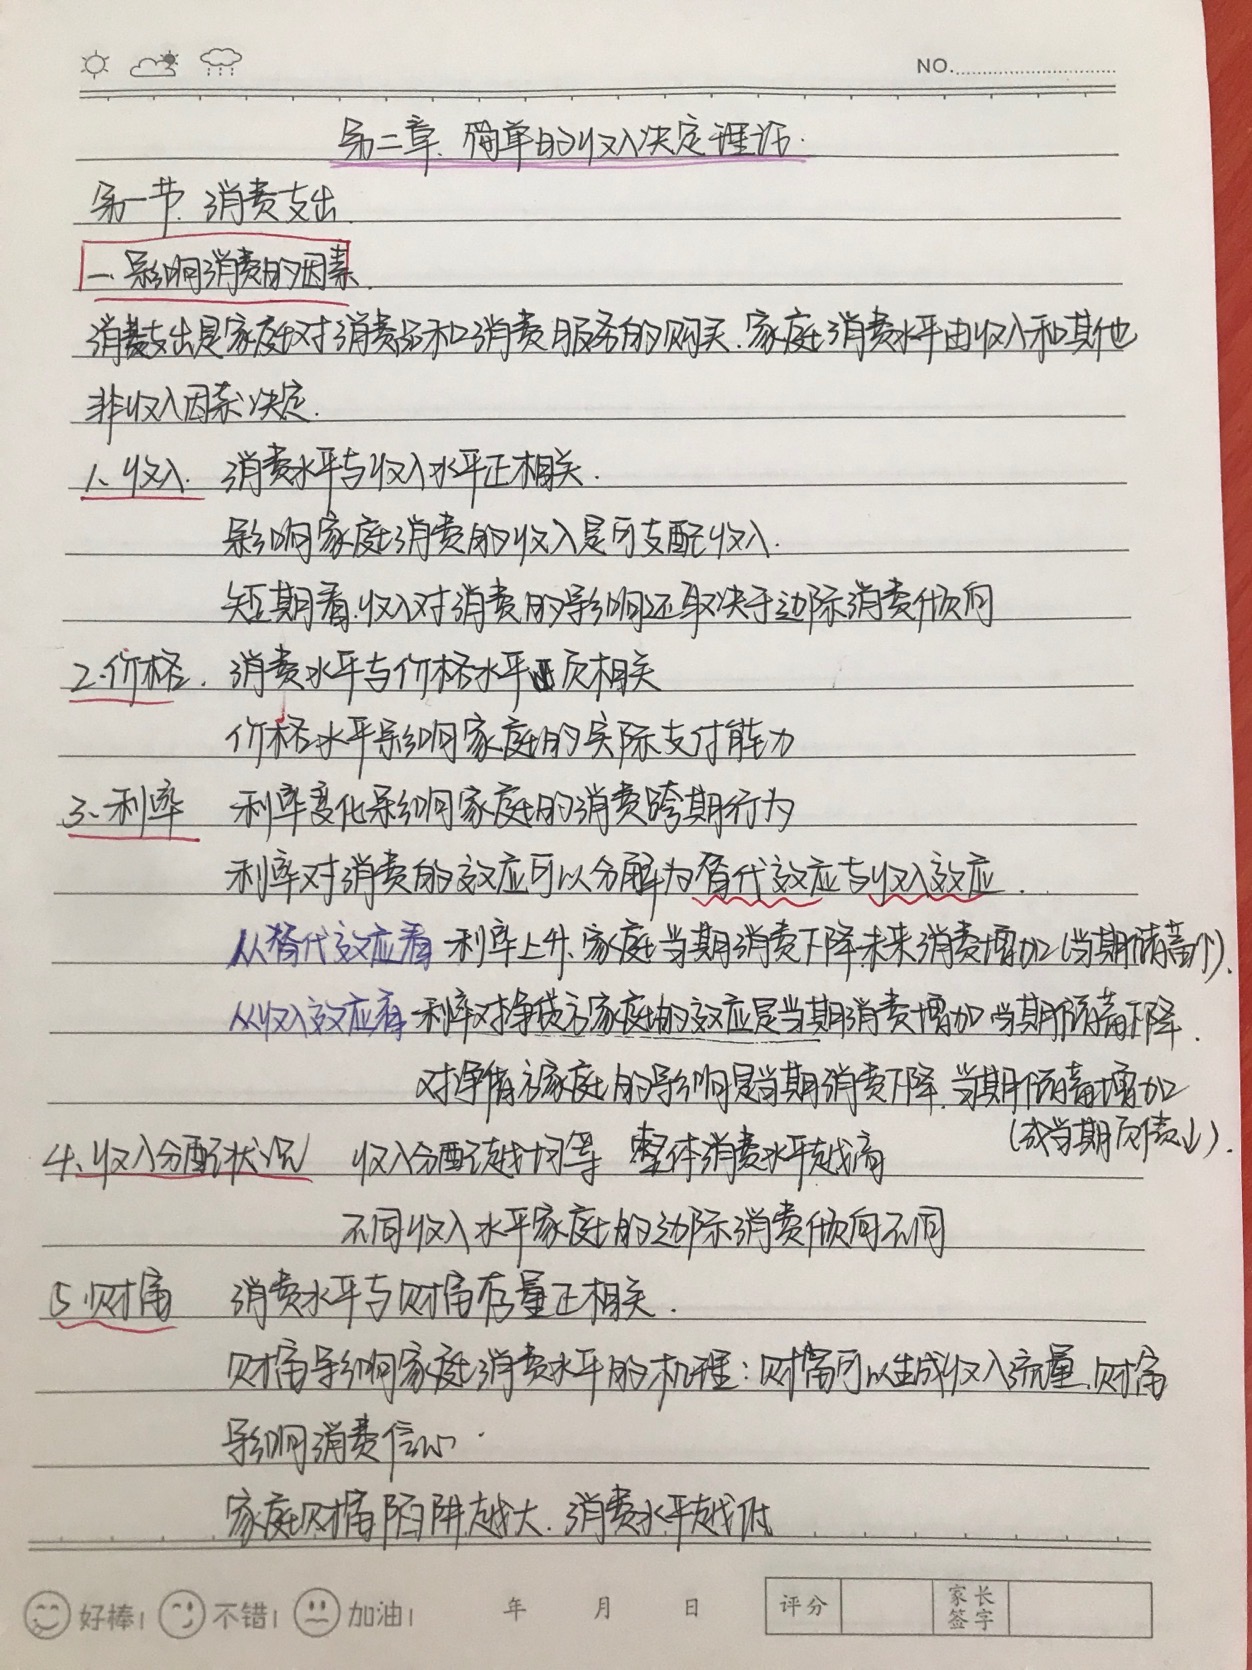 NO.
第二章.简单的收入决定理论.
第一节.消费支出.
一.影响消费的因素.
消费支出是家庭对消费品和消费服务的购买.家庭消费水平由收入和其他
非收入因素决定.
1、收入. 消费水平与收入水平正相关.
影响家庭消费的收入是可支配收入.
短期看.收入对消费的影响还取决于边际消费倾向
2.价格. 消费水平与价格水平反相关
价格水平影响家庭的实际支付能力
3、利率 利率变化影响家庭的消费跨期行为
利率对消费的效应可以分解为替代效应与收入效应.
从替代效应看 利率上升.家庭当期消费下降.未来消费增加(当期储蓄个).
从收入效应看 利率对净贷方家庭的效应是当期消费增加 当期储蓄下降.
对净借方家庭的影响是当期消费下降.当期储蓄增加
(或当期负债↓).
4、收入分配状况 收入分配越均等 整体消费水平越高
不同收入水平家庭的边际消费倾向不同
5.财富 消费水平与财富存量正相关.
财富影响家庭消费水平的机理:财富可以生成收入流量.财富
影响消费信心.
家庭财富陷阱越大.消费水平越低
好棒! 不错! 加油! 年 月 日 评分 家长签字